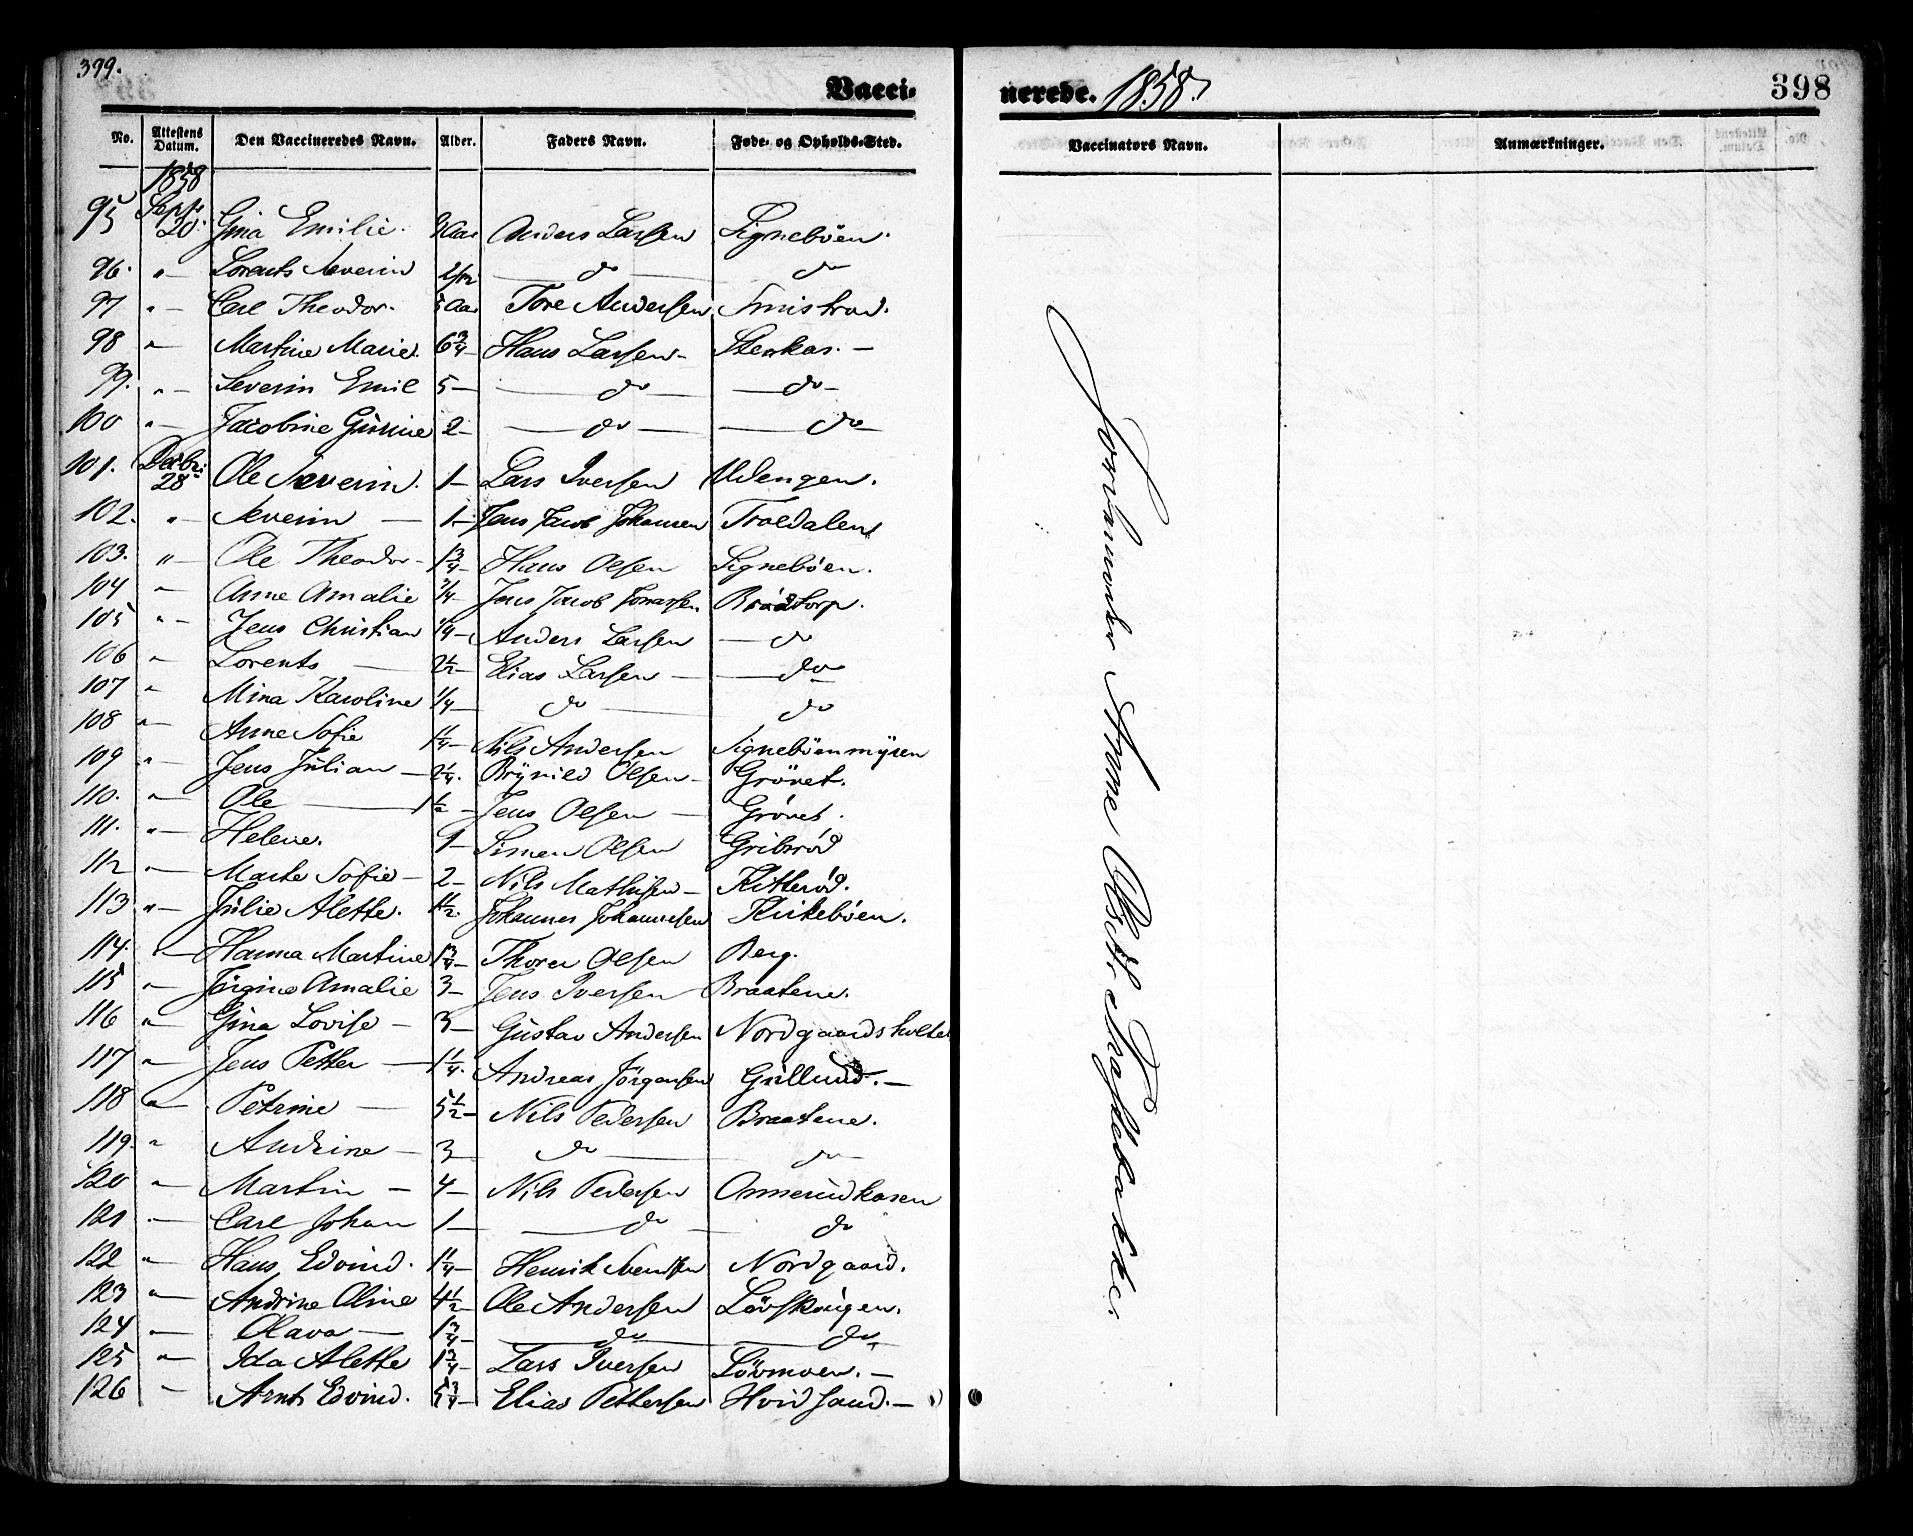 399.
Vacci-
nerede. 1858.
398
No. Attestens Datum. Den Vaccineredes Navn. Alder. Faders Navn. Føde- og Opholds-Sted.
Vaccinators Navn. Anmærkninger.
1858
95 Septr 20. Gina Emilie. Aar Anders Larsen Signebøen.
96. " – Lorents Severin do do
97 " – Carl Theodor. 5 Aar Tore Andersen
98 " Martine Marie. 6 3/4 – Hans Larsen – Stenkas. –
99. " – Severin Emil 5 – do do –
100 " – Jacobine Gurine 2 – do do –
101. Decbr: 28 Ole Severin. 1 – Lars Iversen Udengen.
102. " – Severin – 1 – Jens Jacob Johansen Troldalen
103. " – Ole Theodor – 1 3/4 – Hans Olsen Signebøen.
104 " Anne Amalie 3/4 – Jens Jacob Jonassen Braatorp.
105 " – Jens Christian 1/4 – Anders Larsen – do
106 " Lorents – 2 1/2 – Elias Larsen – – do
107 " Mina Karoline 1/4 – do do
108 " – Anne Sofie 1 1/4 – Nils Andersen Signebøenmyren
109 " – Jens Julian – 2 1/4. Brynild Olsen – Grönet.
110. " – Ole – 1 1/2 – Jens Olsen – Grönet.
111. " – Helene. 1 – Simen Olsen Gribsrød
112 – Marte Sofie – 2 – Nils Mathisen – Kitterød.
113 " – Julie Alette. 1 1/2. Johannes Johannesen Kirkebøen.
114. " – Hanna Martine 1 3/4 – Thorer Olsen Berg.
115 " Jørgine Amalie 3 – Jens Iversen Braatene.
116 " Gina Lovise – 3 – Gustav Andersen Nordgaardsholtet
117 " Jens Petter – 1 1/4. Andreas Jörgensen Gullund. –
118 " – Petrine – 5 1/2 – Nils Pedersen Braatene.
119. " Andrine – 3 – do do –
120 " Martin – 4 – Nils Pedersen Ommerudkasen
121 – Carl Johan 1 – do do
122 " Hans Edvind. 1 1/4 – Henrik Svendsen Nordgaard.
123 " – Andrine Oline 4 1/2 – Ole Andersen Lövskougen.
124 – Olava – 1 3/4 – do do
125 " – Ida Alette 1 3/4 – Lars Iversen Lövmoen. –
126 – Arnt Edvind. 5 3/4 – Elias Pettersen Hvidsand. –
Jordmoder Anne